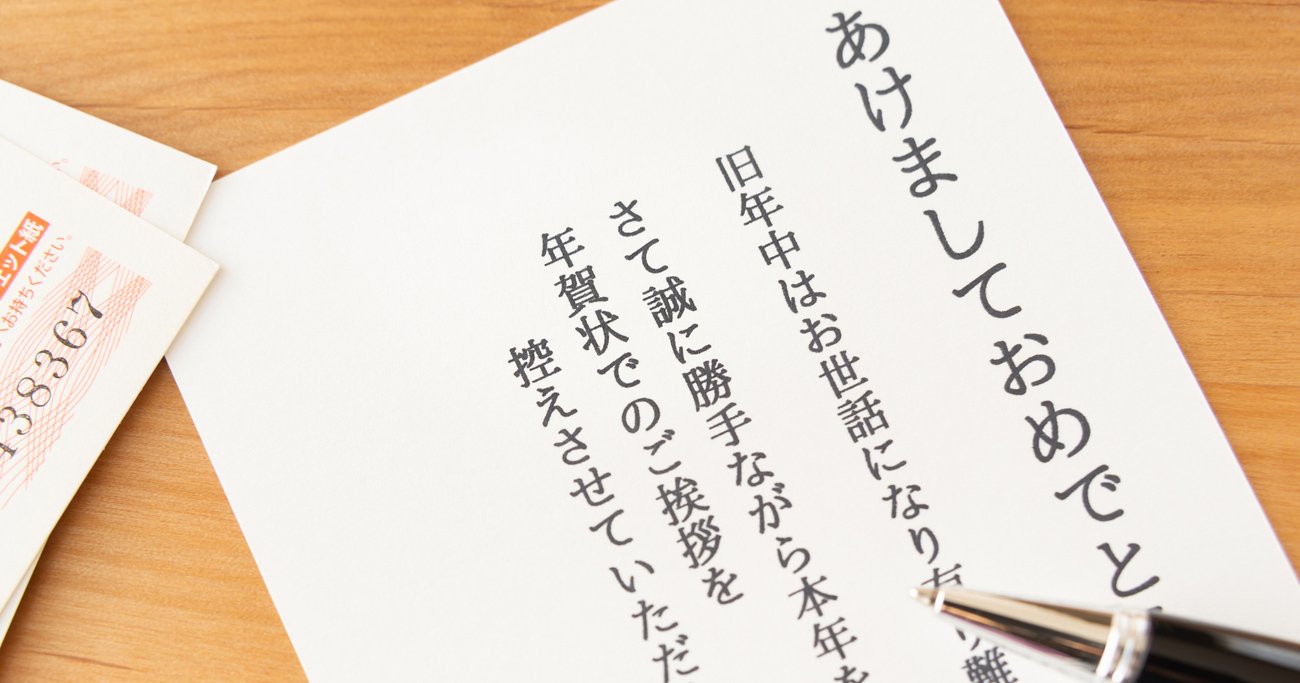 あけましておめでと
旧年中はお世話になり有り難
さて誠に勝手ながら本年を
年賀状でのご挨拶を
控えさせていただ
ェット紙
お持ちください。
38367